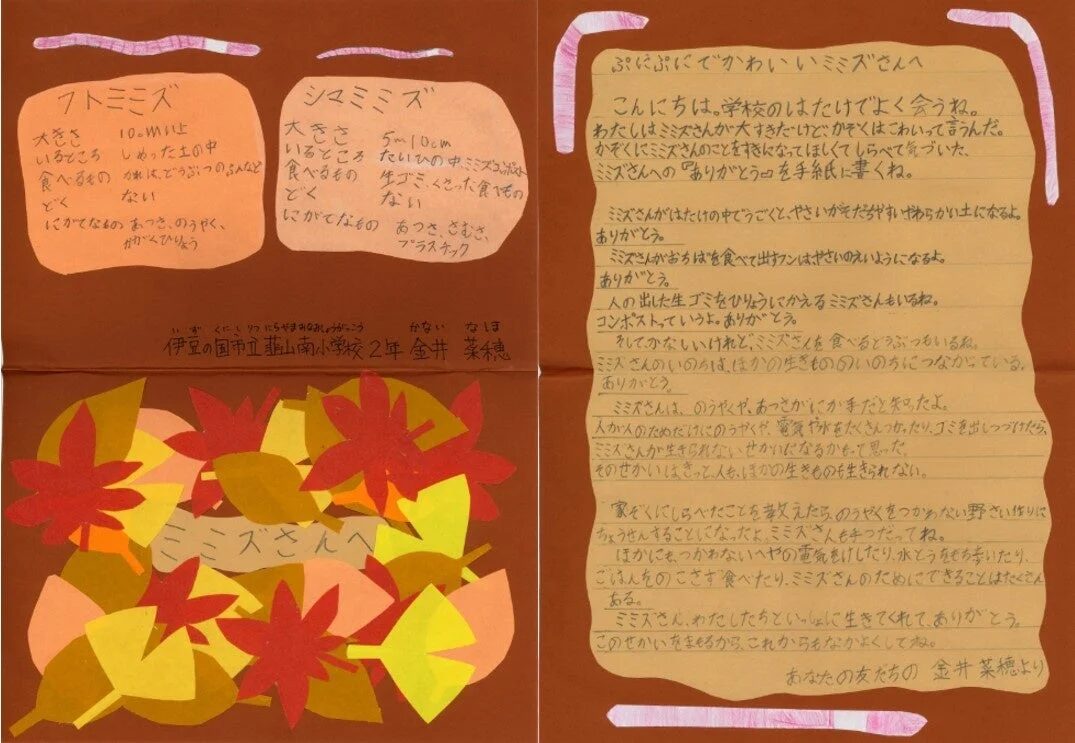 フトミミズ
大きさ 10cm以上
いるところ しめった土の中
食べるもの かれは、どうぶつのふんなど
どく ない
にがてなもの あつさ、のうやく、
かがくひりょう
シマミミズ
大きさ 5〜10cm
いるところ たいひの中、ミミズコンポスト
食べるもの 生ゴミ、くさった食べもの
どく ない
にがてなもの あつさ、さむさ、
プラスチック
いず くにしりつにらやまみなみしょうがっこう かない なほ
伊豆の国市立韮山南小学校2年 金井 菜穂
ミミズさんへ
ぷにぷにでかわいいミミズさんへ
こんにちは。学校のはたけでよく会うね。
わたしはミミズさんが大すきだけど、かぞくはこわいって言うんだ。
かぞくにミミズさんのことをすきになってほしくてしらべて気づいた、
ミミズさんへの『ありがとう』を手紙に書くね。
ミミズさんがはたけの中でうごくと、やさいがそだちやすいやわらかい土になるよ。
ありがとう。
ミミズさんがおちばを食べて出すフンはやさいのえいようになるよ。
ありがとう。
人の出した生ゴミをひりょうにかえるミミズさんもいるね。
コンポストっていうよ。ありがとう。
そして、かなしいけれど、ミミズさんを食べるどうぶつもいるね。
ミミズさんのいのちは、ほかの生きもののいのちにつながっている。
ありがとう。
ミミズさんは、のうやくや、あつさがにが手だと知ったよ。
人が人のためだけにのうやくや、電気や水をたくさんつかったり、ゴミを出しつづけたら、
ミミズさんが生きられないせかいになるかもって思った。
そのせかいはきっと、人も、ほかの生きものも生きられない。
家ぞくにしらべたことを教えたら、のうやくをつかわない野さい作りに
ちょうせんすることになったよ。ミミズさんも手つだってね。
ほかにも、つかわないへやの電気をけしたり、水とうをもち歩いたり、
ごはんをのこさず食べたり、ミミズさんのためにできることはたくさん
ある。
ミミズさん、わたしたちといっしょに生きてくれて、ありがとう。
このせかいをまもるから、これからもなかよくしてね。
あなたの友だちの 金井 菜穂より